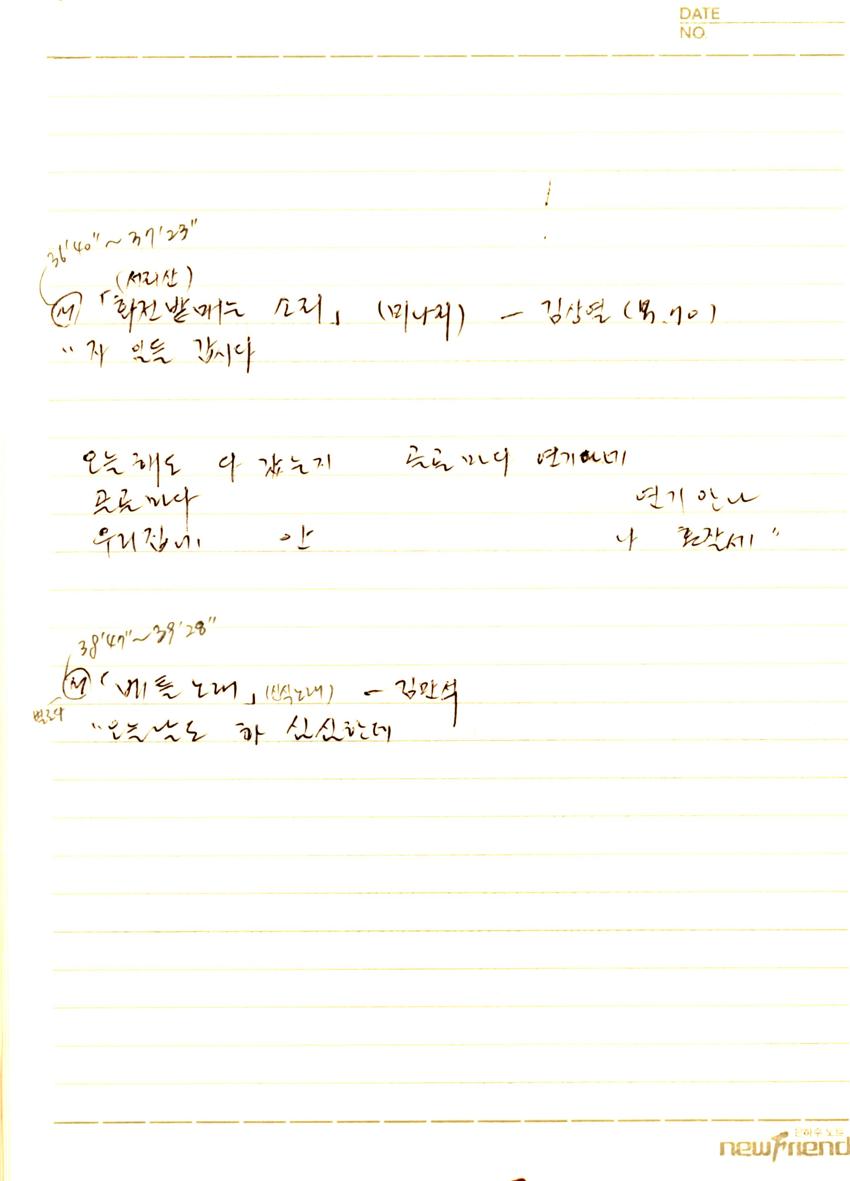 DATE
NO.
36'40"~37'23"
(서리산)
(서) 「화전밭매는 소리」 (미나리) - 김상열 (男.70)
"자 일들 갑시다
오늘해도 다 갔는지 골골마다 연기나네
골골마다 연기 안나
우리집에 안 나
38'47"~39'28"
(서) 「베틀노래」(신식노래) - 김만석
별로다
"오늘날도 하 심심한데
은하수 노트
newfriend